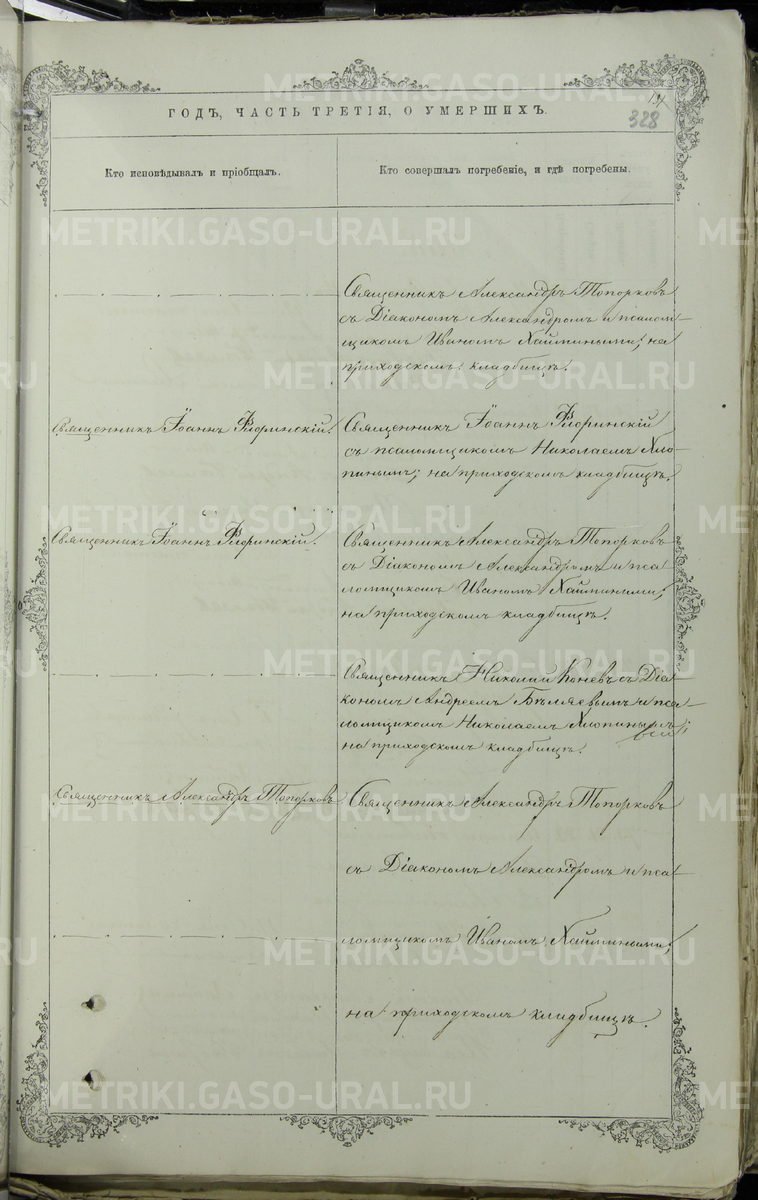 ГОДЪ, ЧАСТЬ ТРЕТІЯ, О УМЕРШИХЪ.
328
Кто исповѣдывалъ и пріобщалъ.
Кто совершалъ погребеніе, и гдѣ погребены.
Священникъ Александръ Топорковъ
съ Діакономъ Александромъ и псалом-
щикомъ Иваномъ Хаймиными; на
приходскомъ кладбищѣ.
Священникъ Іоаннъ Флоринскій.
Священникъ Іоаннъ Флоринскій
съ псаломщикомъ Николаемъ Хлю-
пинымъ; на приходскомъ кладбищѣ.
Священникъ Іоаннъ Флоринскій.
Священникъ Александръ Топорковъ
съ Діакономъ Александромъ и пса-
ломщикомъ Иваномъ Хаймиными;
на приходскомъ кладбищѣ.
Священникъ Николай Коневъ съ Діа-
кономъ Андреемъ Бѣляевымъ и пса-
ломщикомъ Николаемъ Хлюпинымъ;
на приходскомъ кладбищѣ.
Священникъ Александръ Топорковъ
Священникъ Александръ Топорковъ
съ Діакономъ Александромъ и пса-
ломщикомъ Иваномъ Хаймиными;
на приходскомъ кладбищѣ.
METRIKI.GASO-URAL.RU